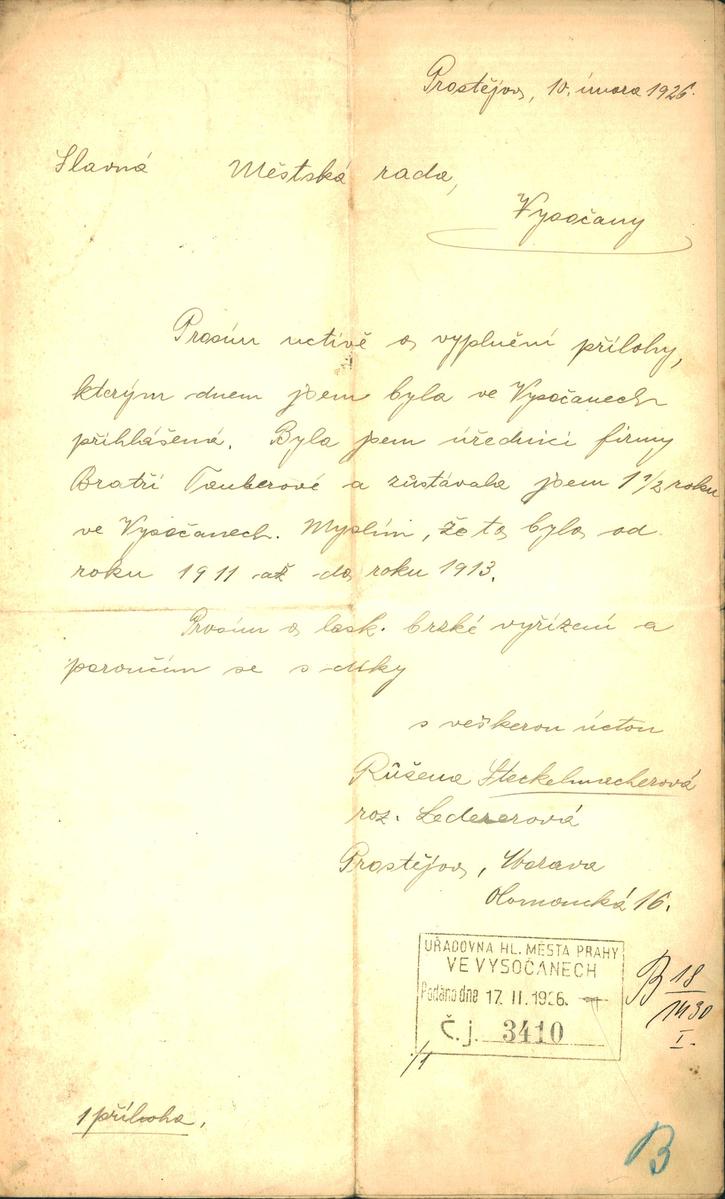 Prostějov, 10. února 1926.
Slavná Městská rada,
Vysočany
Prosím uctivě o vyplnění přílohy,
kterým dnem jsem byla ve Vysočanech
přihlášená. Byla jsem úřednicí firmy
Bratří Tauberové a zůstávala jsem 1 1/2 roku
ve Vysočanech. Myslím, že to bylo od
roku 1911 až do roku 1913.
Prosím o lask. brzké vyřízení a
poroučím se s díky
s veškerou úctou
Růžena Steckelmacherová
roz. Ledererová
Prostějov, Morava
Olomoucká 16.
ÚŘADOVNA HL. MĚSTA PRAHY
VE VYSOČANECH
Podáno dne 17. II. 1926.
Č. j. 3410
/1
B 18
1430
I.
1 příloha.
B